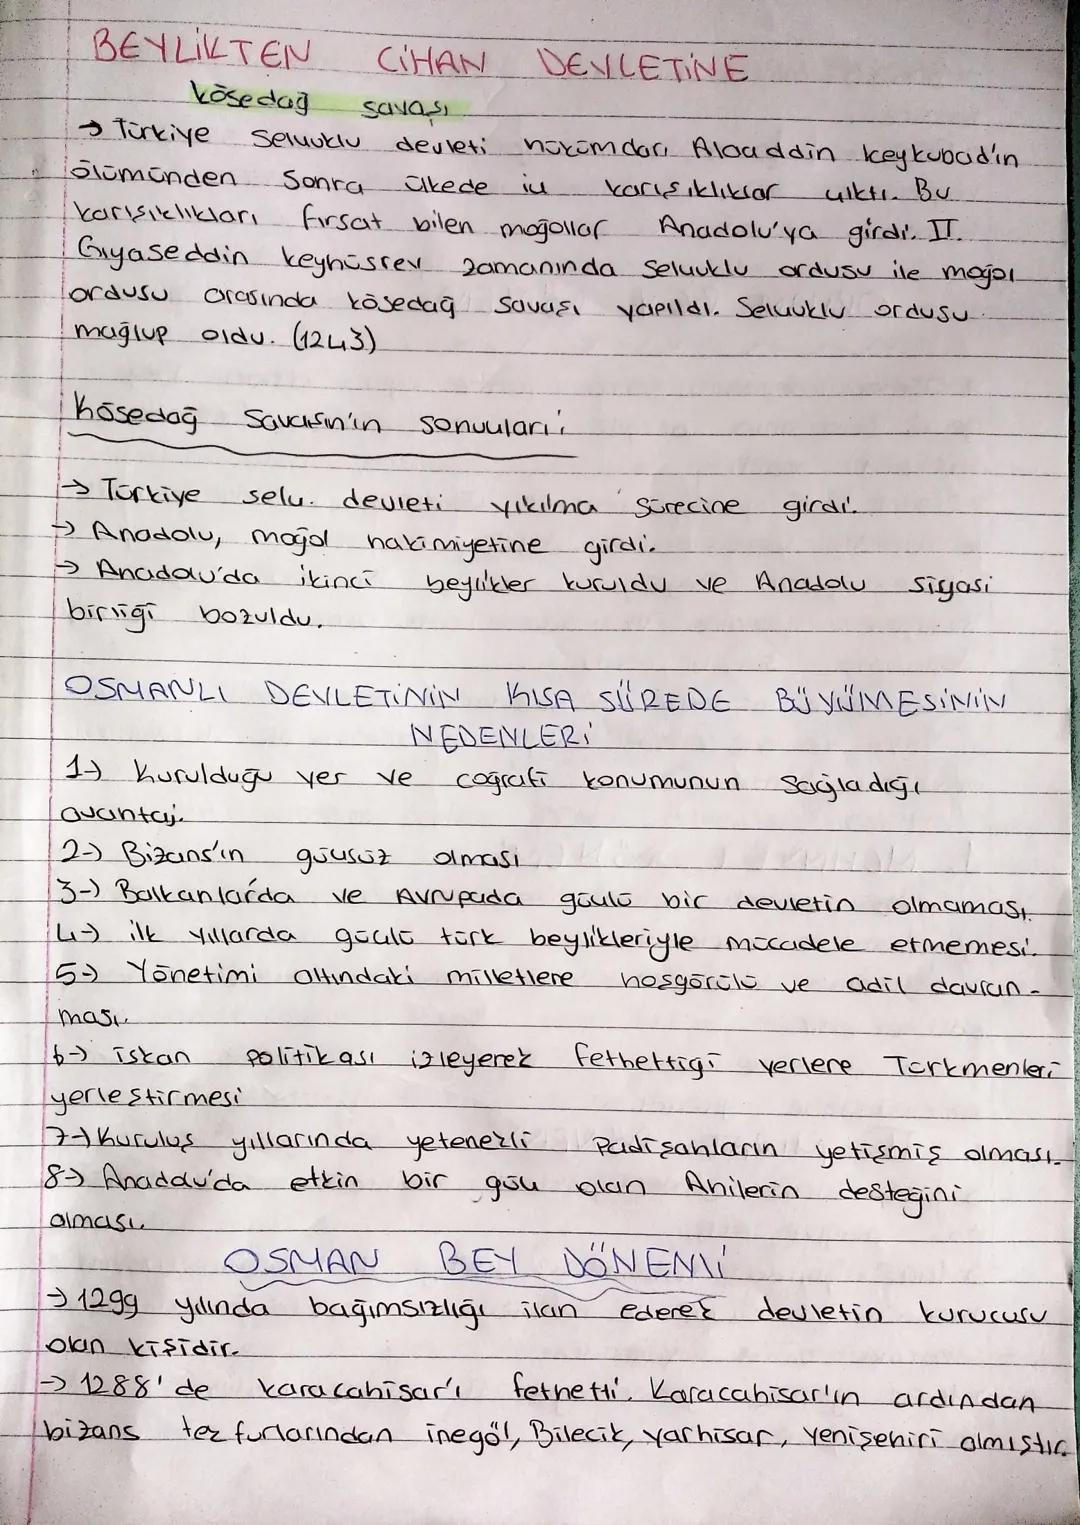 BEYLİKTEN CİHAN DEVLETİNE
Kösedağ savaşı
→ Türkiye Selçuklu devleti hükümdarı Alaaddin keykubad'ın
ölümünden sonra ülkede iç karışıklıklar çıktı. Bu
karışıklıkları fırsat bilen moğollar Anadolu'ya girdi. II.
Gıyaseddin keyhüsrev zamanında Selçuklu ordusu ile moğol
ordusu arasında kösedağ savaşı yapıldı. Selçuklu ordusu
mağlup oldu. (1243)
Kösedağ Savaşın'ın sonuçları;
→ Türkiye selç. devleti yıkılma sürecine girdi.
→ Anadolu, moğol hakimiyetine girdi.
→ Anadolu'da ikinci beylikler kuruldu ve Anadolu siyasi
birliği bozuldu.
OSMANLI DEVLETİNİN KISA SÜREDE BÜYÜMESİNİN
NEDENLERİ
1-) Kurulduğu yer ve coğrafi konumunun sağladığı
avantaj.
2-) Bizans'ın güçsüz olması
3-) Balkanlarda ve Avrupada güçlü bir devletin olmaması.
4-) ilk yıllarda güçlü türk beylikleriyle mücadele etmemesi.
5-) Yönetimi altındaki milletlere hoşgörülü ve adil davran-
ması.
6-) iskan politikası izleyerek fethettiği yerlere Türkmenleri
yerleştirmesi
7-) Kuruluş yıllarında yetenekli Padişahların yetişmiş olması.
8-) Anadolu'da etkin bir güç olan Ahilerin desteğini
alması.
OSMAN BEY DÖNEMİ
→ 1299 yılında bağımsızlığı ilan ederek devletin kurucusu
olan kişidir.
→ 1288'de karacahisar'ı fethetti. Karacahisar'ın ardından
bizans tekfurlarından inegöl, Bilecik, yarhisar, yenişehiri almıştır.